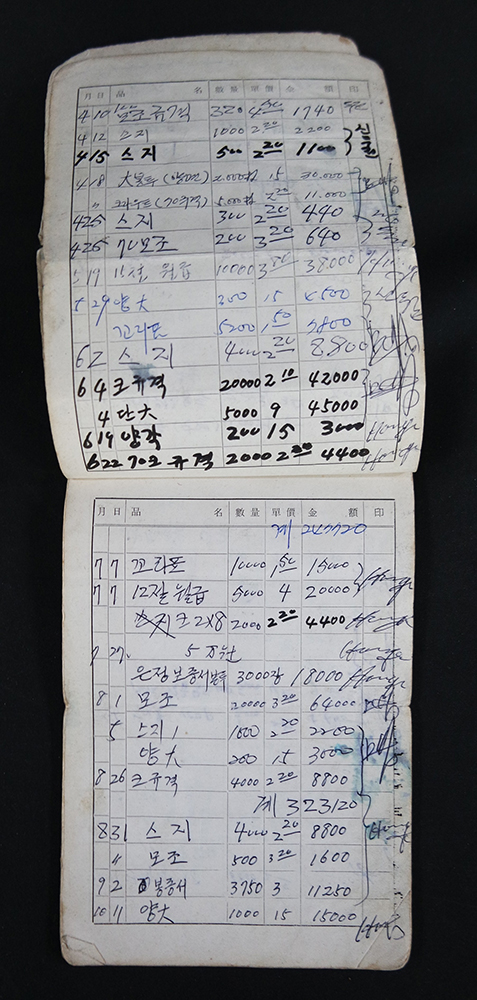 月 日 品 名 數量 單價 金 額 印
4 10 규격 320 4 50 1740
4 12 스지 1000 2 20 2200
4 15 스지 500 2 20 1100
4 18 大봉투 2.000 15 30.000
〃 5.000 2 20 11.000
4 25 스지 300 2 20 440
4 25 70모조 200 3 20 640
5 19 월급 10000 3 80 38000
5 29 양大 300 15 4500
꼬리표 5200 1 50 7800
6 2 스지 4000 2 20 8800
6 4 크규격 20000 2 10 42000
4 단大 5000 9 45000
6 19 양각 200 15 3000
6 22 70크 규격 2000 2 20 4400
月 日 品 名 數量 單價 金 額 印
계 247720
7 7 꼬리표 1000 1 50 1500
7 7 12절 월급 5000 4 20000
크 2x8 2000 2 20 4400
7 27. 5만원
은정 보증서 봉투 3000장 18000
8 1 모조 20000 3 20 64000
5 스지 1000 2 20 2200
양大 200 15 3000
8 26 크규격 4000 2 20 8800
계 323120
8 31 스지 4000 2 20 8800
〃 모조 500 3 20 1600
9 2 봉증서 3750 3 11250
10 11 양大 1000 15 15000